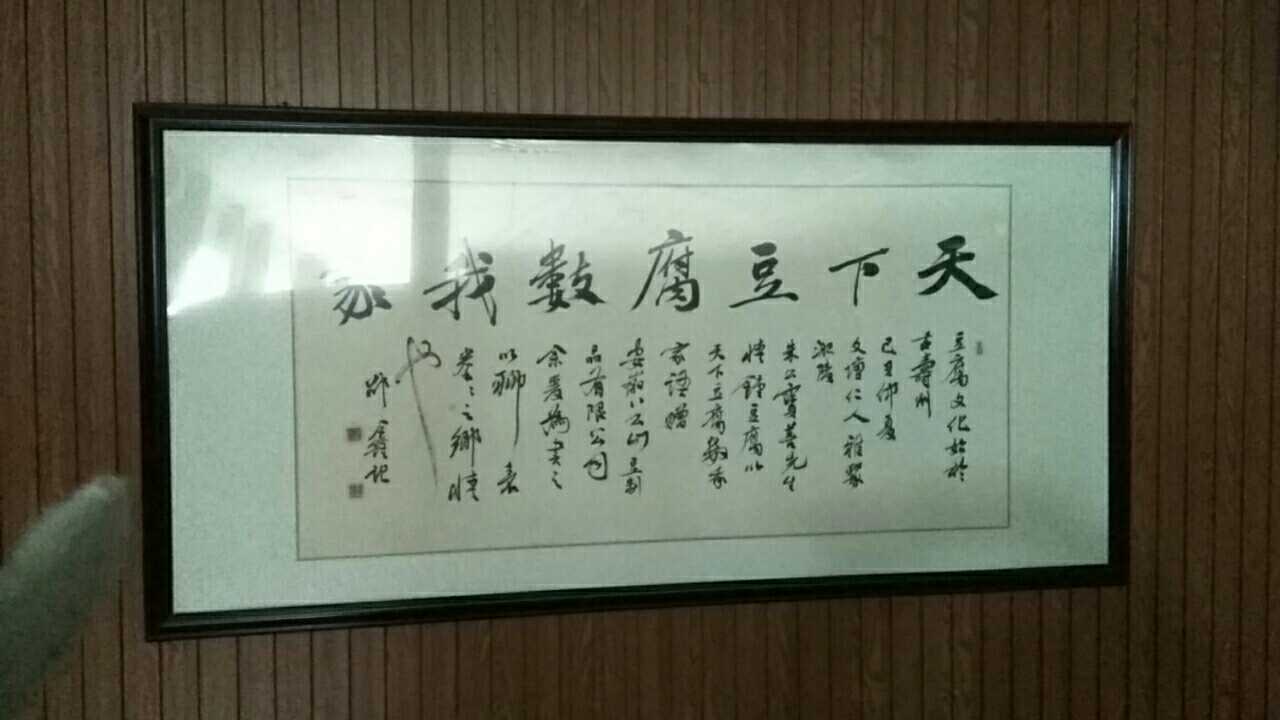 天下豆腐数我家
豆腐文化始於
古壽州
己丑仲夏
文壇仁人雅聚
淮陰
朱公寶善先生
情鍾豆腐以
天下豆腐数我
家語贈
安徽八公山豆制
品有限公司
余爰為書之
以聊表
拳之鄉情
也